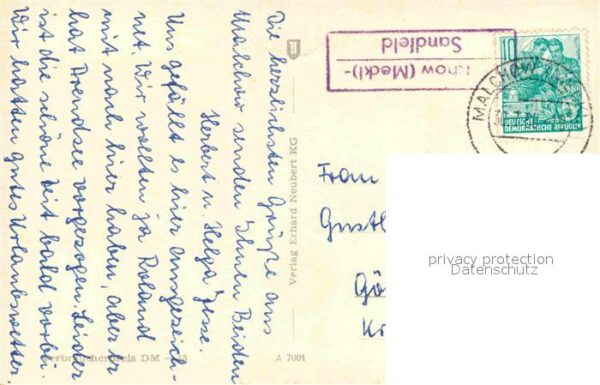 Die herzlichsten Grüße aus
Malchow senden Ihnen Beiden
Herbert u. Helga Jesse.
Uns gefällt es hier ausgezeich-
net. Wir wollten ja Roland
mit nach hier haben, aber er
hat Arendsee vorgezogen. Leider
ist die schöne Zeit bald vorbei.
Wir hatten gutes Urlaubswetter.
Verbraucherpreis DM
A 7001
Verlag Erhard Neubert KG
chow (Meckl)-
Sandfeld
MALCHOW
10
DEUTSCHE
DEMOKRATISCHE REPUBLIK
Frau
Gustl
Gö
privacy protection
Datenschutz